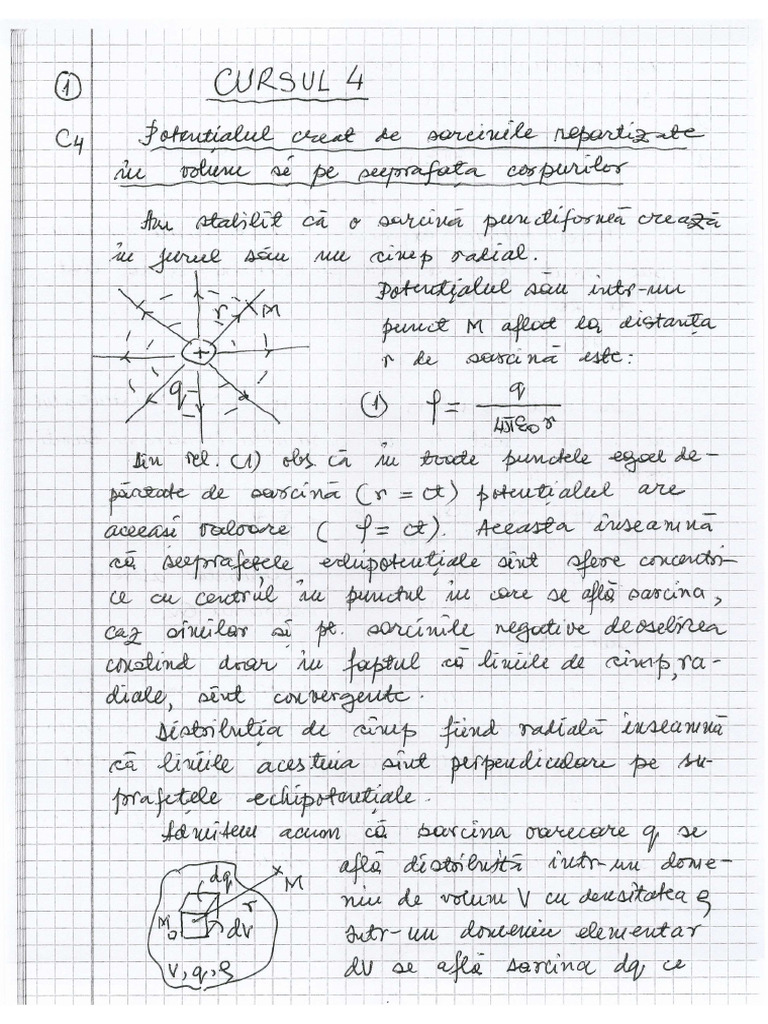 ①
CURSUL 4
C4 Potențialul creat de sarcinile repartizate
în volum și pe suprafața corpurilor
Am stabilit că o sarcină punctiformă crează
în jurul său un cîmp radial.
Potențialul său într-un
punct M aflat la distanța
r de sarcină este:
r M
+
q
(1) φ = q / 4πε₀r
Din rel. (1) obs că în toate punctele egal de-
părtate de sarcină (r = ct) potențialul are
aceeasi valoare ( φ = ct). Aceasta înseamnă
că suprafețele echipotențiale sînt sfere concentri-
ce cu centrul în punctul în care se află sarcina,
caz similar și pt. sarcinile negative deosebirea
constînd doar în faptul că liniile de cîmp, ra-
diale, sînt convergente.
Distribuția de cîmp fiind radială înseamnă
că liniile acestuia sînt perpendiculare pe su-
prafețele echipotențiale.
Admitem acum că sarcina oarecare q se
află distribuită într-un dome-
niu de volum V cu densitatea ρ
Într-un domeniu elementar
dV se află sarcina dq ce
dq M
r
M₀ dV
V, q, ρ